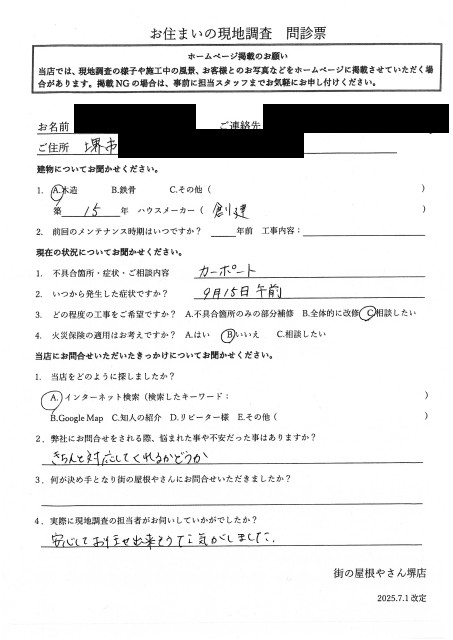 お住まいの現地調査 問診票
ホームページ掲載のお願い
当店では、現地調査の様子や施工中の風景、お客様とのお写真などをホームページに掲載させていただく場
合があります。掲載NGの場合は、事前に担当スタッフまでお気軽にお申し付けください。
お名前 ご連絡先
ご住所 堺市
建物についてお聞かせください。
1. A.木造 B.鉄骨 C.その他( )
築 15 年 ハウスメーカー( 創建 )
2. 前回のメンテナンス時期はいつですか? 年前 工事内容:
現在の状況についてお聞かせください。
1. 不具合箇所・症状・ご相談内容 カーポート
2. いつから発生した症状ですか? 9月15日午前
3. どの程度の工事をご希望ですか? A.不具合箇所のみの部分補修 B.全体的に改修 C.相談したい
4. 火災保険の適用はお考えですか? A.はい B.いいえ C.相談したい
当店にお問合せいただいたきっかけについてお聞かせください。
1. 当店をどのように探しましたか?
A.インターネット検索(検索したキーワード: )
B.Google Map C.知人の紹介 D.リピーター様 E.その他( )
2. 弊社にお問合せをされる際、悩まれた事や不安だった事はありますか?
きちんと対応してくれるかどうか
3. 何が決め手となり街の屋根やさんにお問合せいただきましたか?
4. 実際に現地調査の担当者がお伺いしていかがでしたか?
安心してお任せ出来そうな気がしました。
街の屋根やさん堺店
2025.7.1 改定